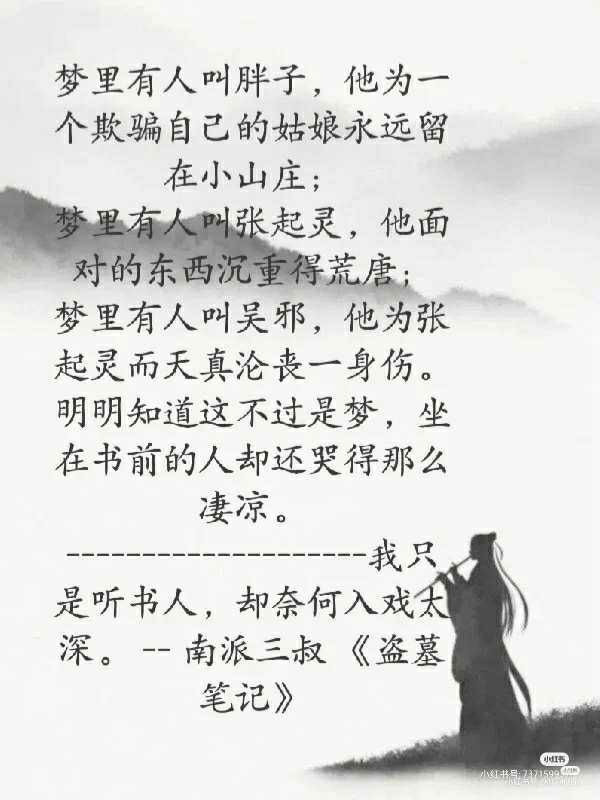 梦里有人叫胖子，他为一
个欺骗自己的姑娘永远留
在小山庄；
梦里有人叫张起灵，他面
对的东西沉重得荒唐；
梦里有人叫吴邪，他为张
起灵而天真沦丧一身伤。
明明知道这不过是梦，坐
在书前的人却还哭得那么
凄凉。
--------------------我只
是听书人，却奈何入戏太
深。 -- 南派三叔 《盗墓
笔记》
小红书
小红书号: 7371599